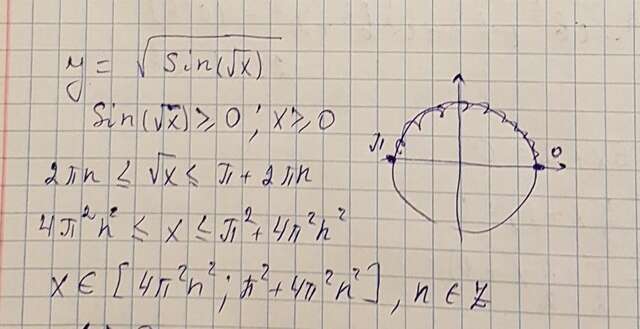 y = √(Sin(√x))
Sin(√x) ⩾ 0 ; x ⩾ 0
2πn ≤ √x ≤ π + 2πn
4π²n² ≤ x ≤ π² + 4π²n²
x ∈ [4π²n² ; π² + 4π²n²] , n ∈ Z
π
0